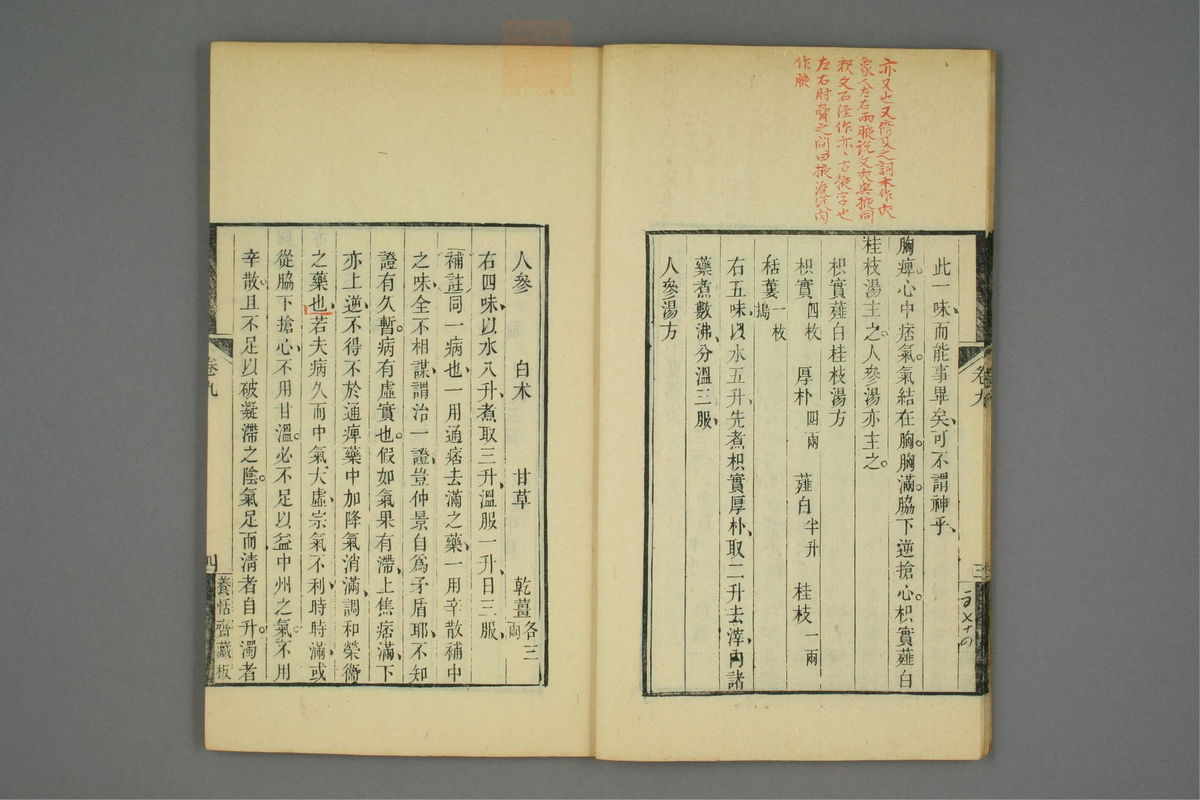 亦又也又係及之詞本作大
象人左右兩腋說文大與掖同
左右肘脅之間曰掖
作腋
此一味而能事畢矣可不謂神乎
胸痺心中痞氣氣結在胸胸滿脇下逆搶心枳實薤白
桂枝湯主之人參湯亦主之
枳實薤白桂枝湯方
枳實四枚 厚朴四兩 薤白半升 桂枝一兩
栝蔞一枚搗
右五味以水五升先煮枳實厚朴取二升去滓內諸
藥煮數沸分溫三服
人參湯方
卷九
三
人參 白朮 甘草 乾薑各三兩
右四味以水八升煮取三升溫服一升日三服
補註同一病也一用通痞去滿之藥一用辛散補中
之味全不相謀謂治一證豈仲景自爲矛盾耶不知
證有久暫病有虛實也假如氣果有滯上焦痞滿下
亦上逆不得不於通痺藥中加降氣消滿調和榮衞
之藥也若夫病久而中氣大虛宗氣不利時時滿或
從脇下搶心不用甘溫必不足以益中州之氣不用
辛散且不足以破凝滯之陰氣足而淸者自升濁者
卷九
四
養恬齋藏板